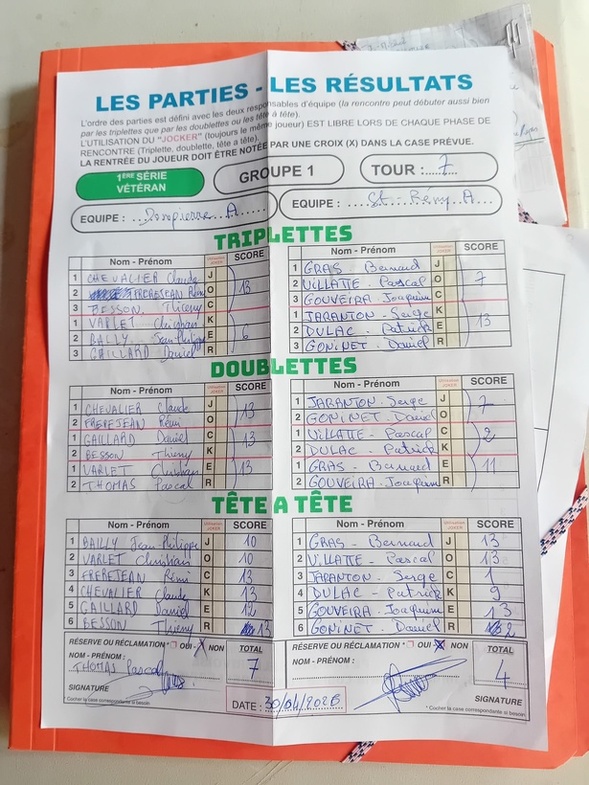 LES PARTIES - LES RÉSULTATS
L'ordre des parties est défini avec les deux responsables d'équipe (la rencontre peut débuter aussi bien
par les triplettes que par les doublettes ou les tête à tête).
L'UTILISATION DU "JOCKER" (toujours le même joueur) EST LIBRE LORS DE CHAQUE PHASE DE
RENCONTRE (Triplette, doublette, tête à tête).
LA RENTRÉE DU JOUEUR DOIT ÊTRE NOTÉE PAR UNE CROIX (X) DANS LA CASE PRÉVUE.
1ERE SÉRIE VÉTÉRAN GROUPE 1 TOUR : 7
EQUIPE : Dompierre A EQUIPE : St. Rémy A
TRIPLETTES
Nom - Prénom Utilisation JOKER SCORE Nom - Prénom Utilisation JOKER SCORE
1 CHEVALIER Claude J 13 1 GRAS Bernard J 7
2 FREREJEAN Rémi O 2 VILLATTE - Pascal O
3 BESSON Thierry C 3 GOUVEIRA Joaquim C
1 VARLET Christian K 6 1 JARANTON - Serge K 13
2 BAILLY Jean Philippe E 2 DULAC - Patrick E
3 GAILLARD Daniel R 3 GONINET - Daniel R
DOUBLETTES
Nom - Prénom Utilisation JOKER SCORE Nom - Prénom Utilisation JOKER SCORE
1 CHEVALIER Claude J 13 1 JARANTON - Serge J 7
2 FREREJEAN Rémi O 2 GONINET - Daniel O
1 GAILLARD Daniel C 13 1 VILLATTE - Pascal C 2
2 BESSON Thierry K 2 DULAC - Patrick K
1 VARLET Christian E 13 1 GRAS - Bernard E 11
2 THOMAS Pascal R 2 GOUVEIRA - Joaquim R
TÊTE A TÊTE
Nom - Prénom Utilisation JOKER SCORE Nom - Prénom Utilisation JOKER SCORE
1 BAILLY Jean Philippe J 10 1 GRAS - Bernard J 13
2 VARLET Christian O 10 2 VILLATTE - Pascal O 13
3 FREREJEAN Rémi C 13 3 JARANTON - Serge C 1
4 CHEVALIER Claude K 13 4 DULAC - Patrick K 9
5 GAILLARD Daniel E 12 5 GOUVEIRA - Joaquim E 13
6 BESSON Thierry R 13 6 GONINET - Daniel R 2
RÉSERVE OU RÉCLAMATION * OUI - X NON TOTAL RÉSERVE OU RÉCLAMATION * OUI X NON TOTAL
NOM - PRÉNOM : 7 NOM - PRÉNOM : 4
THOMAS Pascal
SIGNATURE SIGNATURE
* Cocher la case correspondante si besoin DATE : 30/04/2026 * Cocher la case correspondante si besoin